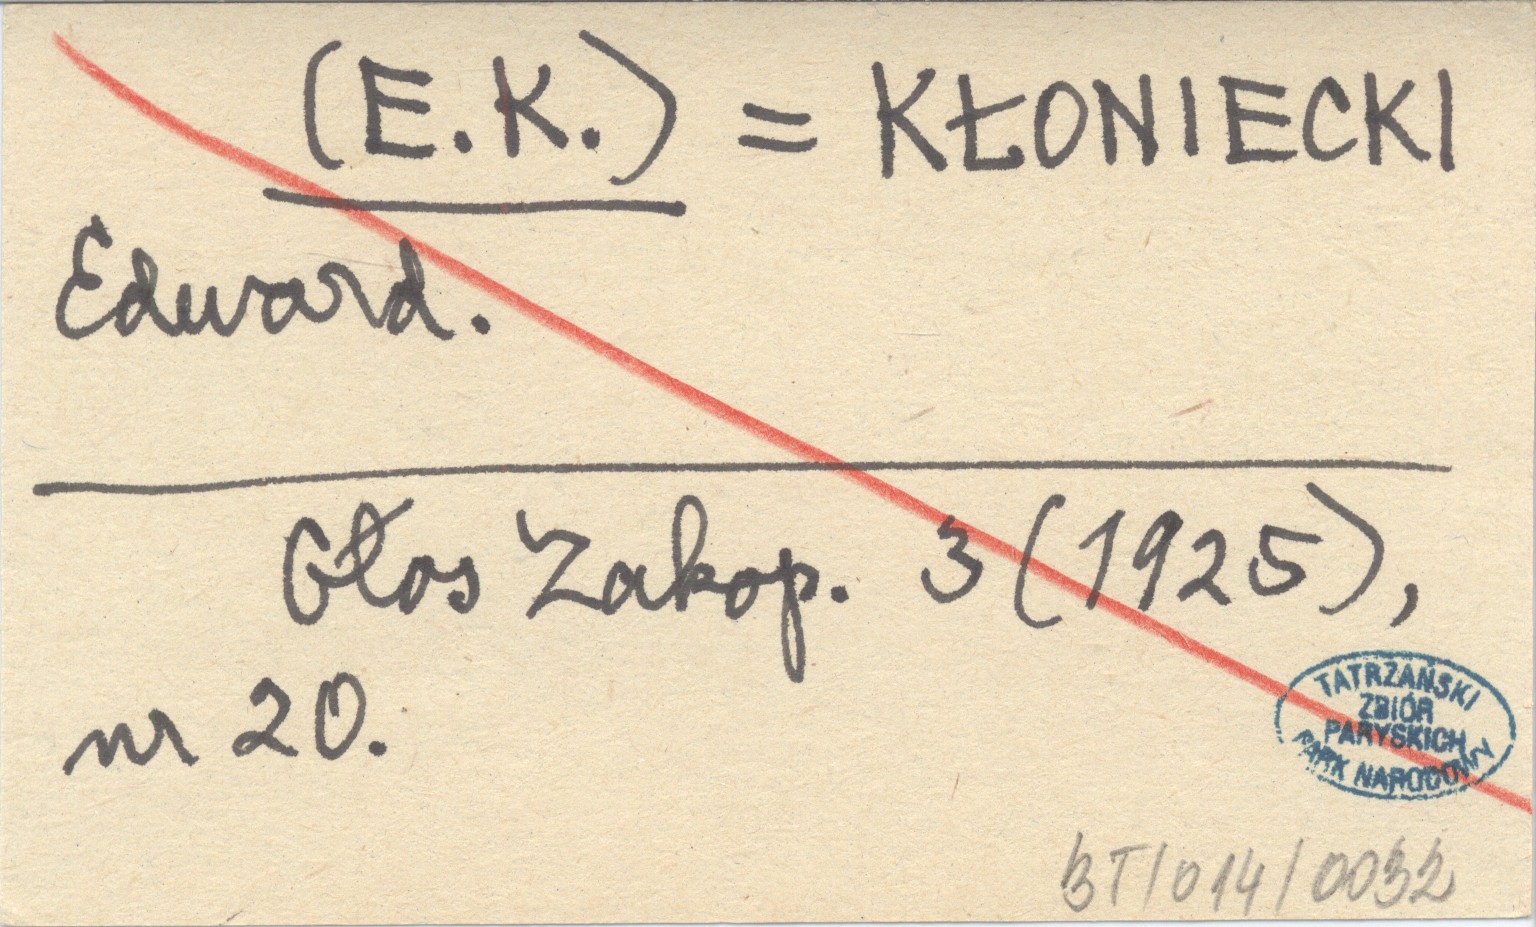 (E.K.) = KŁONIECKI
Edward.
Głos Zakop. 3 (1925),
nr 20.
TATRZAŃSKI
ZBIÓR
PARYSKICH
PARK NARODOWY
BT/014/0032